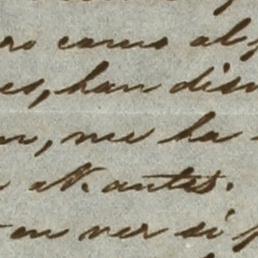 ro como al
es, han dis
n, me ha
antes.
en ver si p